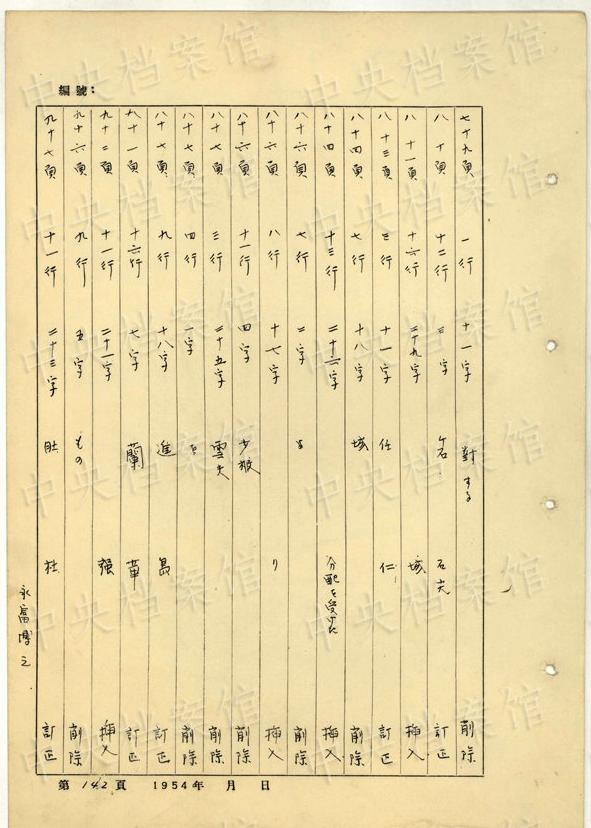 編號：
七十九頁 一行 十一字 對する 削除
八十頁 十二行 三字 名 石六 訂正
八十一頁 十六行 二十九字 城 挿入
八十三頁 三行 十一字 任 仁 訂正
八十四頁 七行 十八字 城 削除
八十四頁 十三行 二十六字 分配を受けた 挿入
八十六頁 七行 二字 削除
八十六頁 八行 十七字 り 挿入
八十六頁 十一行 四字 削除
八十七頁 三行 三十五字 削除
八十七頁 四行 一字 を 削除
八十七頁 九行 十八字 進 島 訂正
九十一頁 十六行 七字 蘭 華 訂正
九十二頁 十一行 二十一字 强 挿入
九十六頁 九行 五字 もの 削除
九十七頁 十一行 二十三字 肚 社 訂正
永富博之
第 142 頁 1954年 月 日
中央档案馆